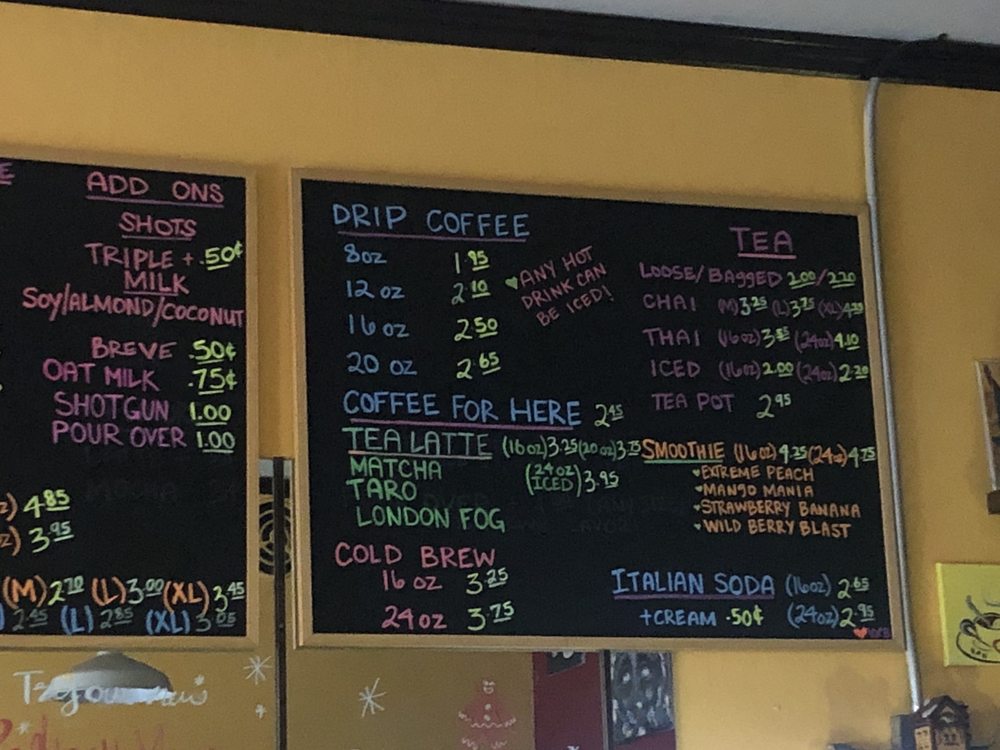 ADD ONS
SHOTS
TRIPLE + .50¢
MILK
SOY/ALMOND/COCONUT
BREVE .50¢
OAT MILK .75¢
SHOTGUN 1.00
POUR OVER 1.00
4.85
3.95
(M) 2.70 (L) 3.00 (XL) 3.45
2.45 (L) 2.85 (XL) 3.05
DRIP COFFEE
8oz 1.95
12 oz 2.10
16 oz 2.50
20 oz 2.65
ANY HOT
DRINK CAN
BE ICED!
COFFEE FOR HERE 2.45
TEA LATTE (16oz) 3.25 (20oz) 3.75
MATCHA (24oz ICED) 3.95
TARO
LONDON FOG
COLD BREW
16 oz 3.25
24oz 3.75
TEA
LOOSE/BAGGED 2.00/2.20
CHAI (M) 3.25 (L) 3.75 (XL)
THAI (16oz) 3.85 (24oz) 4.10
ICED (16oz) 2.00 (24oz) 2.20
TEA POT 2.95
SMOOTHIE (16oz) 4.25 (24oz) 4.75
EXTREME PEACH
MANGO MANIA
STRAWBERRY BANANA
WILD BERRY BLAST
ITALIAN SODA (16oz) 2.65
+CREAM .50¢ (24oz) 2.95